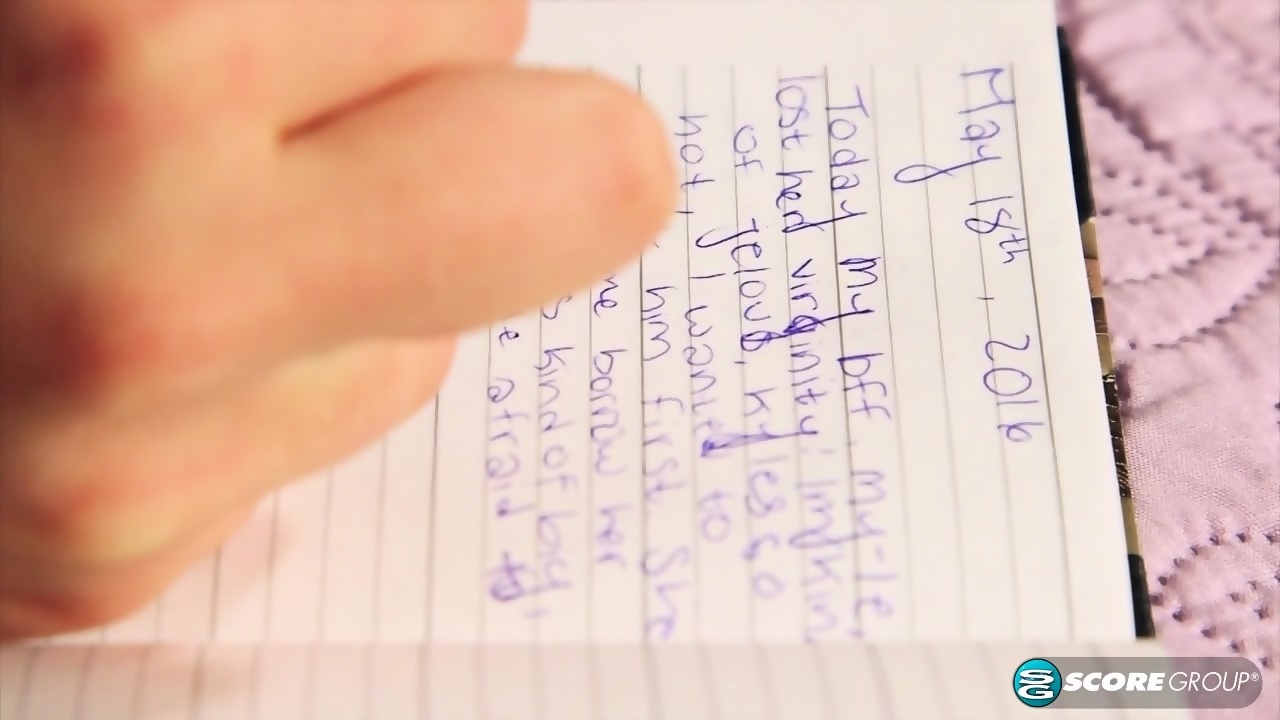 May 18th, 2016
Today my bff, my-le,
lost her virginity! Im kin
of jelous, Kyles so
hot, I wanted to
him first She
me borrow her
kind of big,
afraid to
SCORE GROUP®